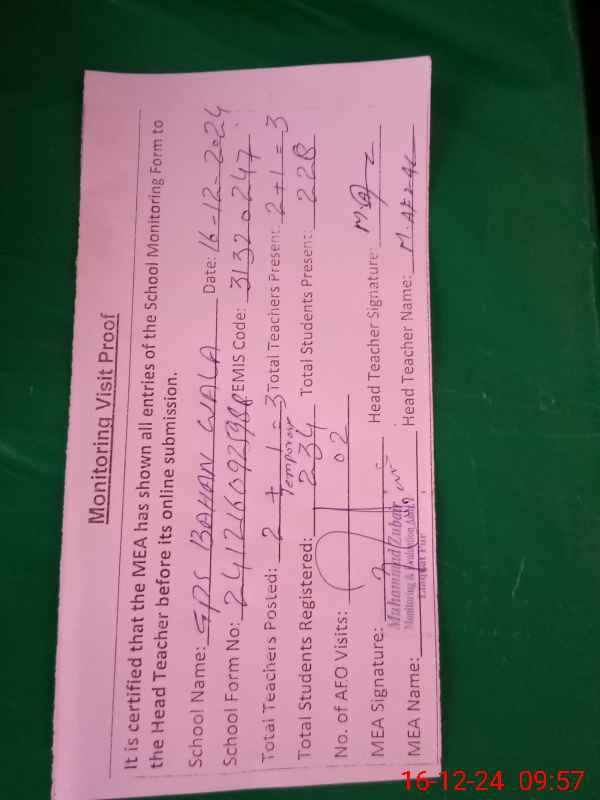 Monitoring Visit Proof
It is certified that the MEA has shown all entries of the School Monitoring Form to
the Head Teacher before its online submission.
School Name: GPS BAHAN WALA Date: 16-12-2024
School Form No: EMIS Code: 31320247
Total Teachers Posted: 2 + 1 = 3 Total Teachers Present: 2+1=3
Temporary
Total Students Registered: 234 Total Students Present: 228
No. of AFO Visits: 02
MEA Signature: Head Teacher Signature:
Muhammad Zubair
Monitoring & Evaluation
MEA Name: Head Teacher Name:
16-12-24 09:57